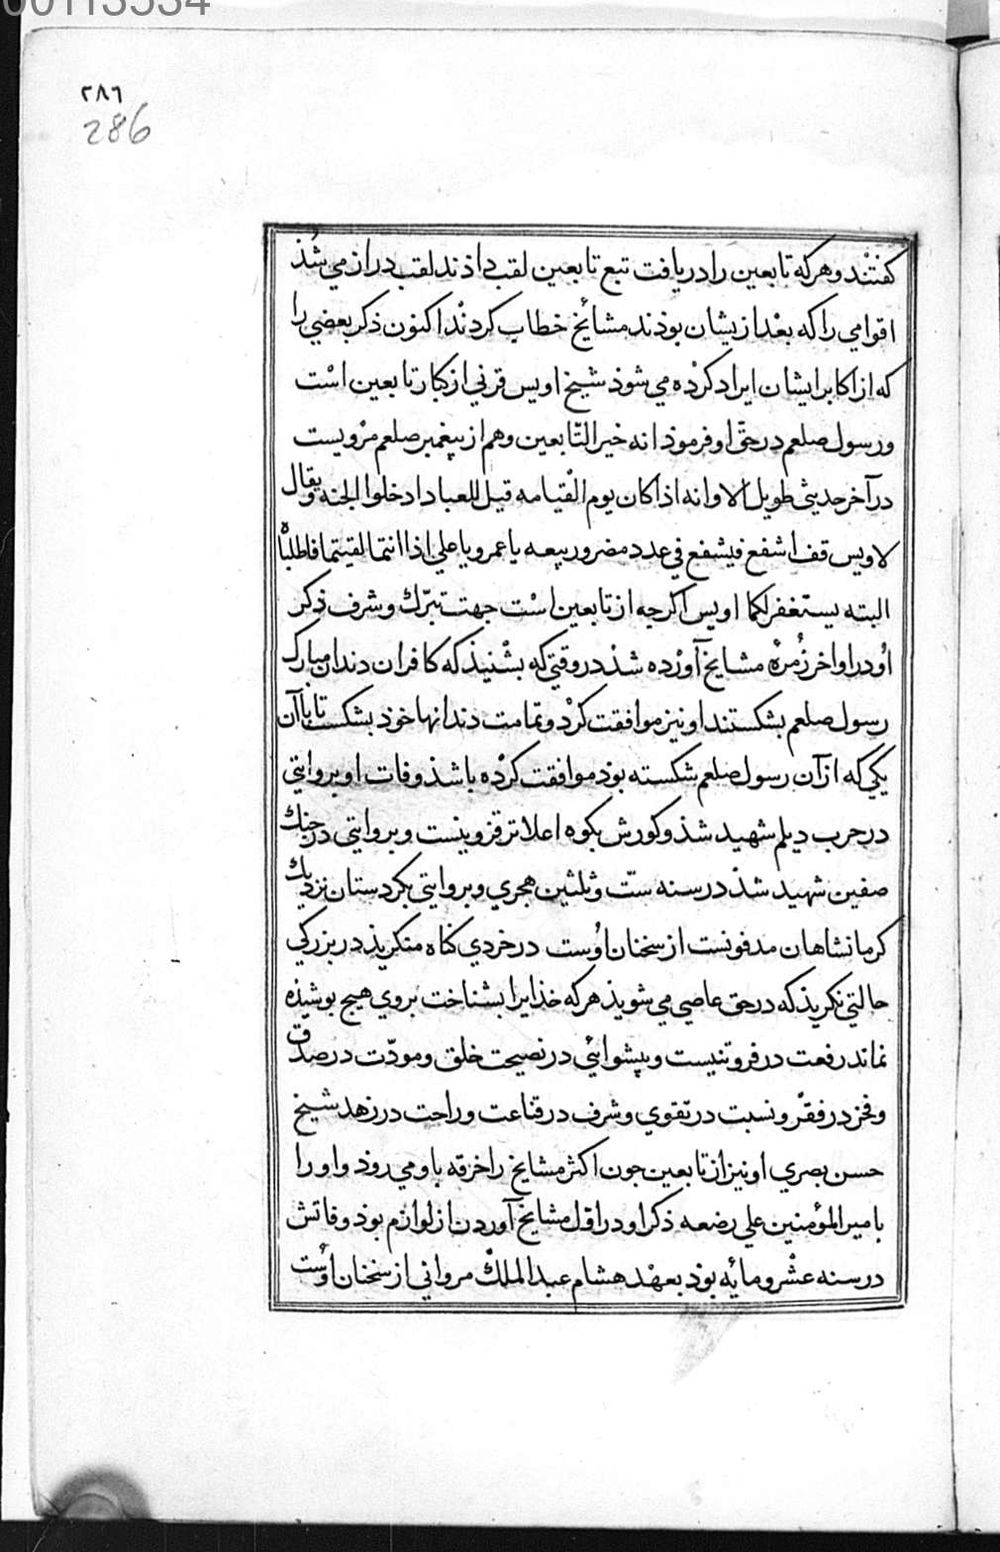 00113534
٢٨٦
286
كفتند وهركه تابعين را دريافت تبع تابعين لقب داذند لقب دراز مي شذ
اقوامي راكه بعد ازيشان بوذند مشائخ خطاب كردند اكنون ذكر بعضي را
كه از اكابر ايشان ايراد كرده مي شوذ شيخ اويس قرني از كبار تابعين است
ورسول صلعم در حق او فرموذ انه خير التابعين وهم از پيغمبر صلعم مرويست
در آخر حديثي طويل الا وانه اذا كان يوم القيامه قيل للعباد ادخلوا الجنه ويقال
لاويس قف اشفع فيشفع في عدد مضر وربيعه يا عمر ويا علي اذا انتما لقيتما فاطلبا
البته يستغفر لكما اويس اكرجه از تابعين است جهت تبرّك وشرف ذكر
او در اواخر زمره مشايخ آورده شذ در وقتي كه بشنيذ كه كافران دندان مبارك
رسول صلعم بشكستند او نيز موافقت كرد وتمامت دندانها خوذ بشكست تا با آن
يكي كه از آن رسول صلعم شكسته بوذ موافقت كرده باشذ وفات او بروايتي
در حرب ديلم شهيد شذ وكورش بكوه اعلاتر قزوينست وبروايتي در جنك
صفين شهيد شذ در سنه ستّ وثلثين هجري وبروايتي بكردستان نزديك
كرمانشاهان مدفونست از سخنان اوست در خردي كناه منكريذ در بزركي
حالتي نكريذ كه در حق عاصي مي شويذ هركه خذايرا بشناخت بروي هيج بوشيذه
نماند رفعت در فروتنيست وپيشوائي در نصيحت خلق ومودّت در صدق
وفخر در فقر ونسبت در تقوي وشرف در قناعت وراحت در زهد شيخ
حسن بصري او نيز از تابعين جون اكثر مشايخ را خرقه باو مي روذ واو را
بامير المؤمنين علي رضعه ذكر او در اوّل مشايخ آوردن از لوازم بوذ وفاتش
در سنه عشر ومائه بوذ بعهد هشام عبد الملك مرواني از سخنان اوست